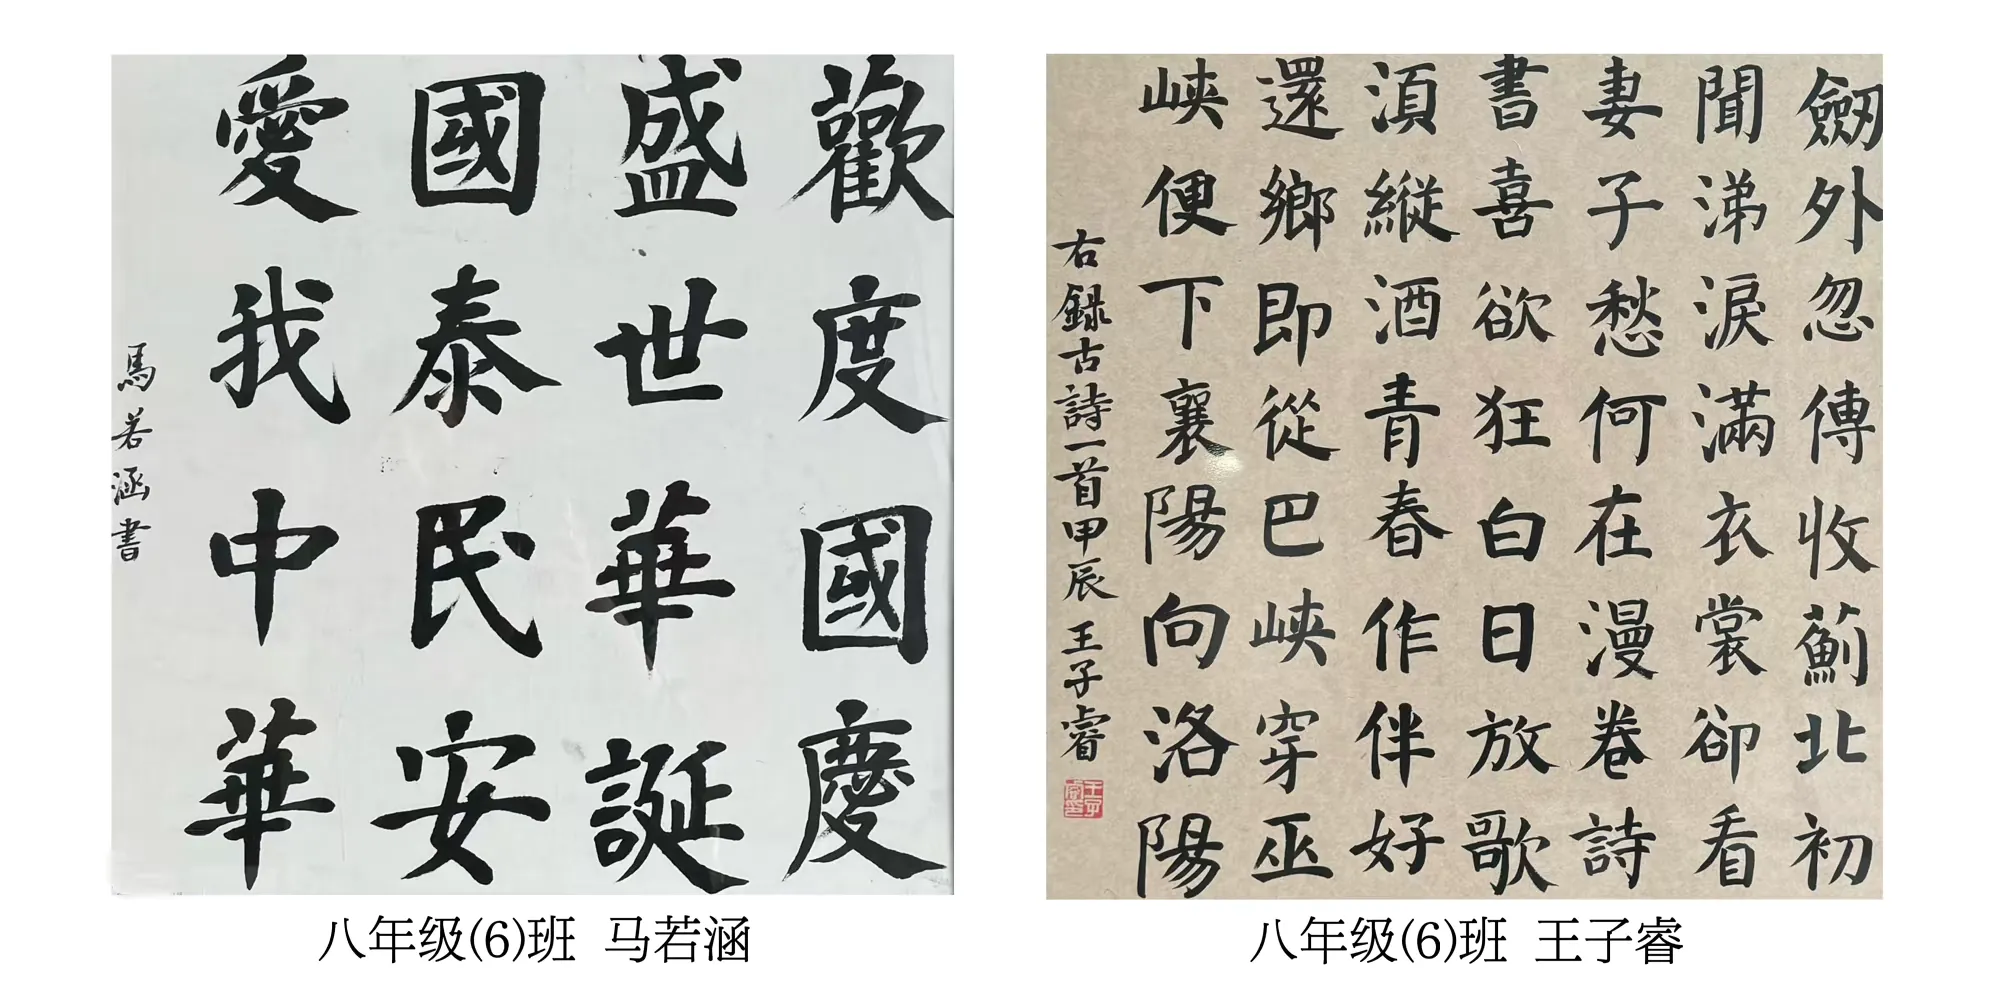 歡度國慶
盛世華誕
國泰民安
愛我中華
馬若涵書
八年级(6)班 马若涵
劒外忽傳收薊北初
聞涕淚滿衣裳卻看
妻子愁何在漫卷詩
書喜欲狂白日放歌
須縱酒青春作伴好
還鄉即從巴峽穿巫
峽便下襄陽向洛陽
右録古詩一首甲辰 王子睿
八年级(6)班 王子睿